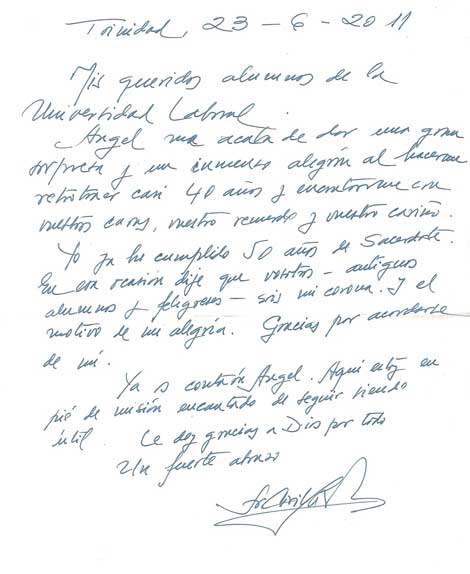 Trinidad, 23-6-2011
Mis queridos alumnos de la
Universidad Laboral.
Angel me acaba de dar una gran
sorpresa y un inmensa alegría al hacerme
retrotraer casi 40 años y encontrarme con
vuestras caras, vuestro recuerdo y vuestro cariño.
Yo ya he cumplido 50 años de Sacerdote.
En esa ocasión dije que vosotros - antiguos
alumnos y feligreses - sois mi corona. Y el
motivo de mi alegría. Gracias por acordarse
de mí.
Ya os contará Angel. Aquí estoy en
pié de misión encantado de seguir siendo
útil. Le doy gracias a Dios por todo
Un fuerte abrazo